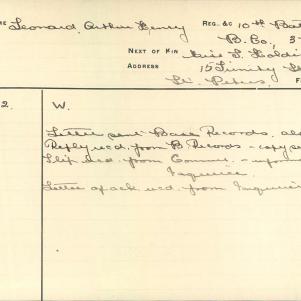 Leonard, Arthur Henry REG. &c 10th Bat
B. Co., 3
NEXT OF KIN Miss L. Goldi
ADDRESS 15 Trinity St
St. Peters
2. W.
Letter sent Base Records,
Reply recd. from B Records - copy se
Slip recd. from Commi. - infor
Inquiries
Letter of ack recd. from Inquiries